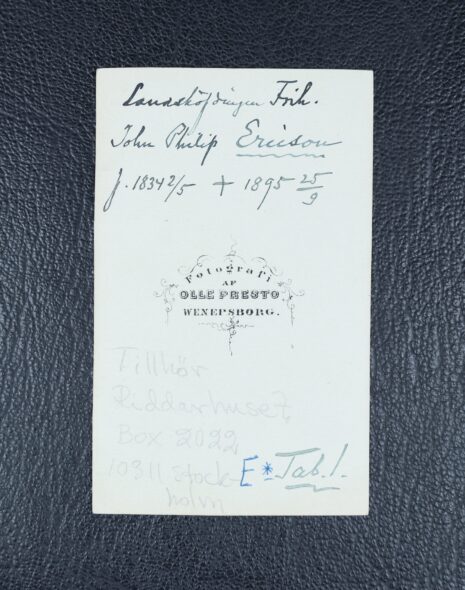 Landshöfdingen Frih.
John Philip Ericson
f. 1834 2/5 + 1895 25/9
Fotografi
AF
OLLE PRESTO
WENERSBORG.
Tillhör
Riddarhuset,
Box 2022
10311 Stock-
holm
E* Tab. 1.